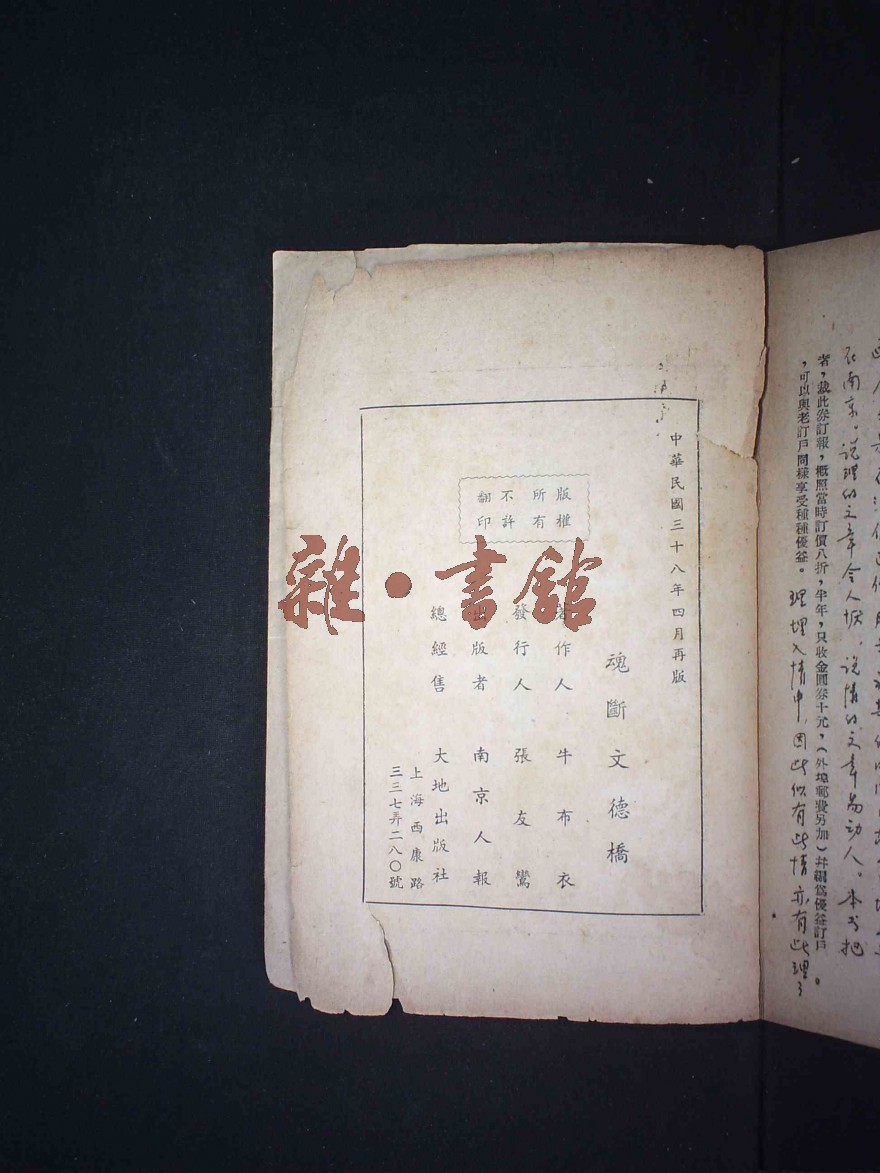 省，裁此券訂報，概照當時訂價八折，半年，只收金圓券十元，（外埠郵費另加）并列爲優益訂戶
，可以與老訂戶同樣享受種種優益。
在南京。說理的文章令人
說情的文章
動人。本书把
理埋入情中，因此似有此情亦有此理了
中華民國三十八年四月再版
版權
所有
不許
翻印
魂斷文德橋
著作人 牛布衣
發行人 張友鸞
出版者 南京人報
總經售 大地出版社
上海西康路
三三七弄二八〇號
雜·書館